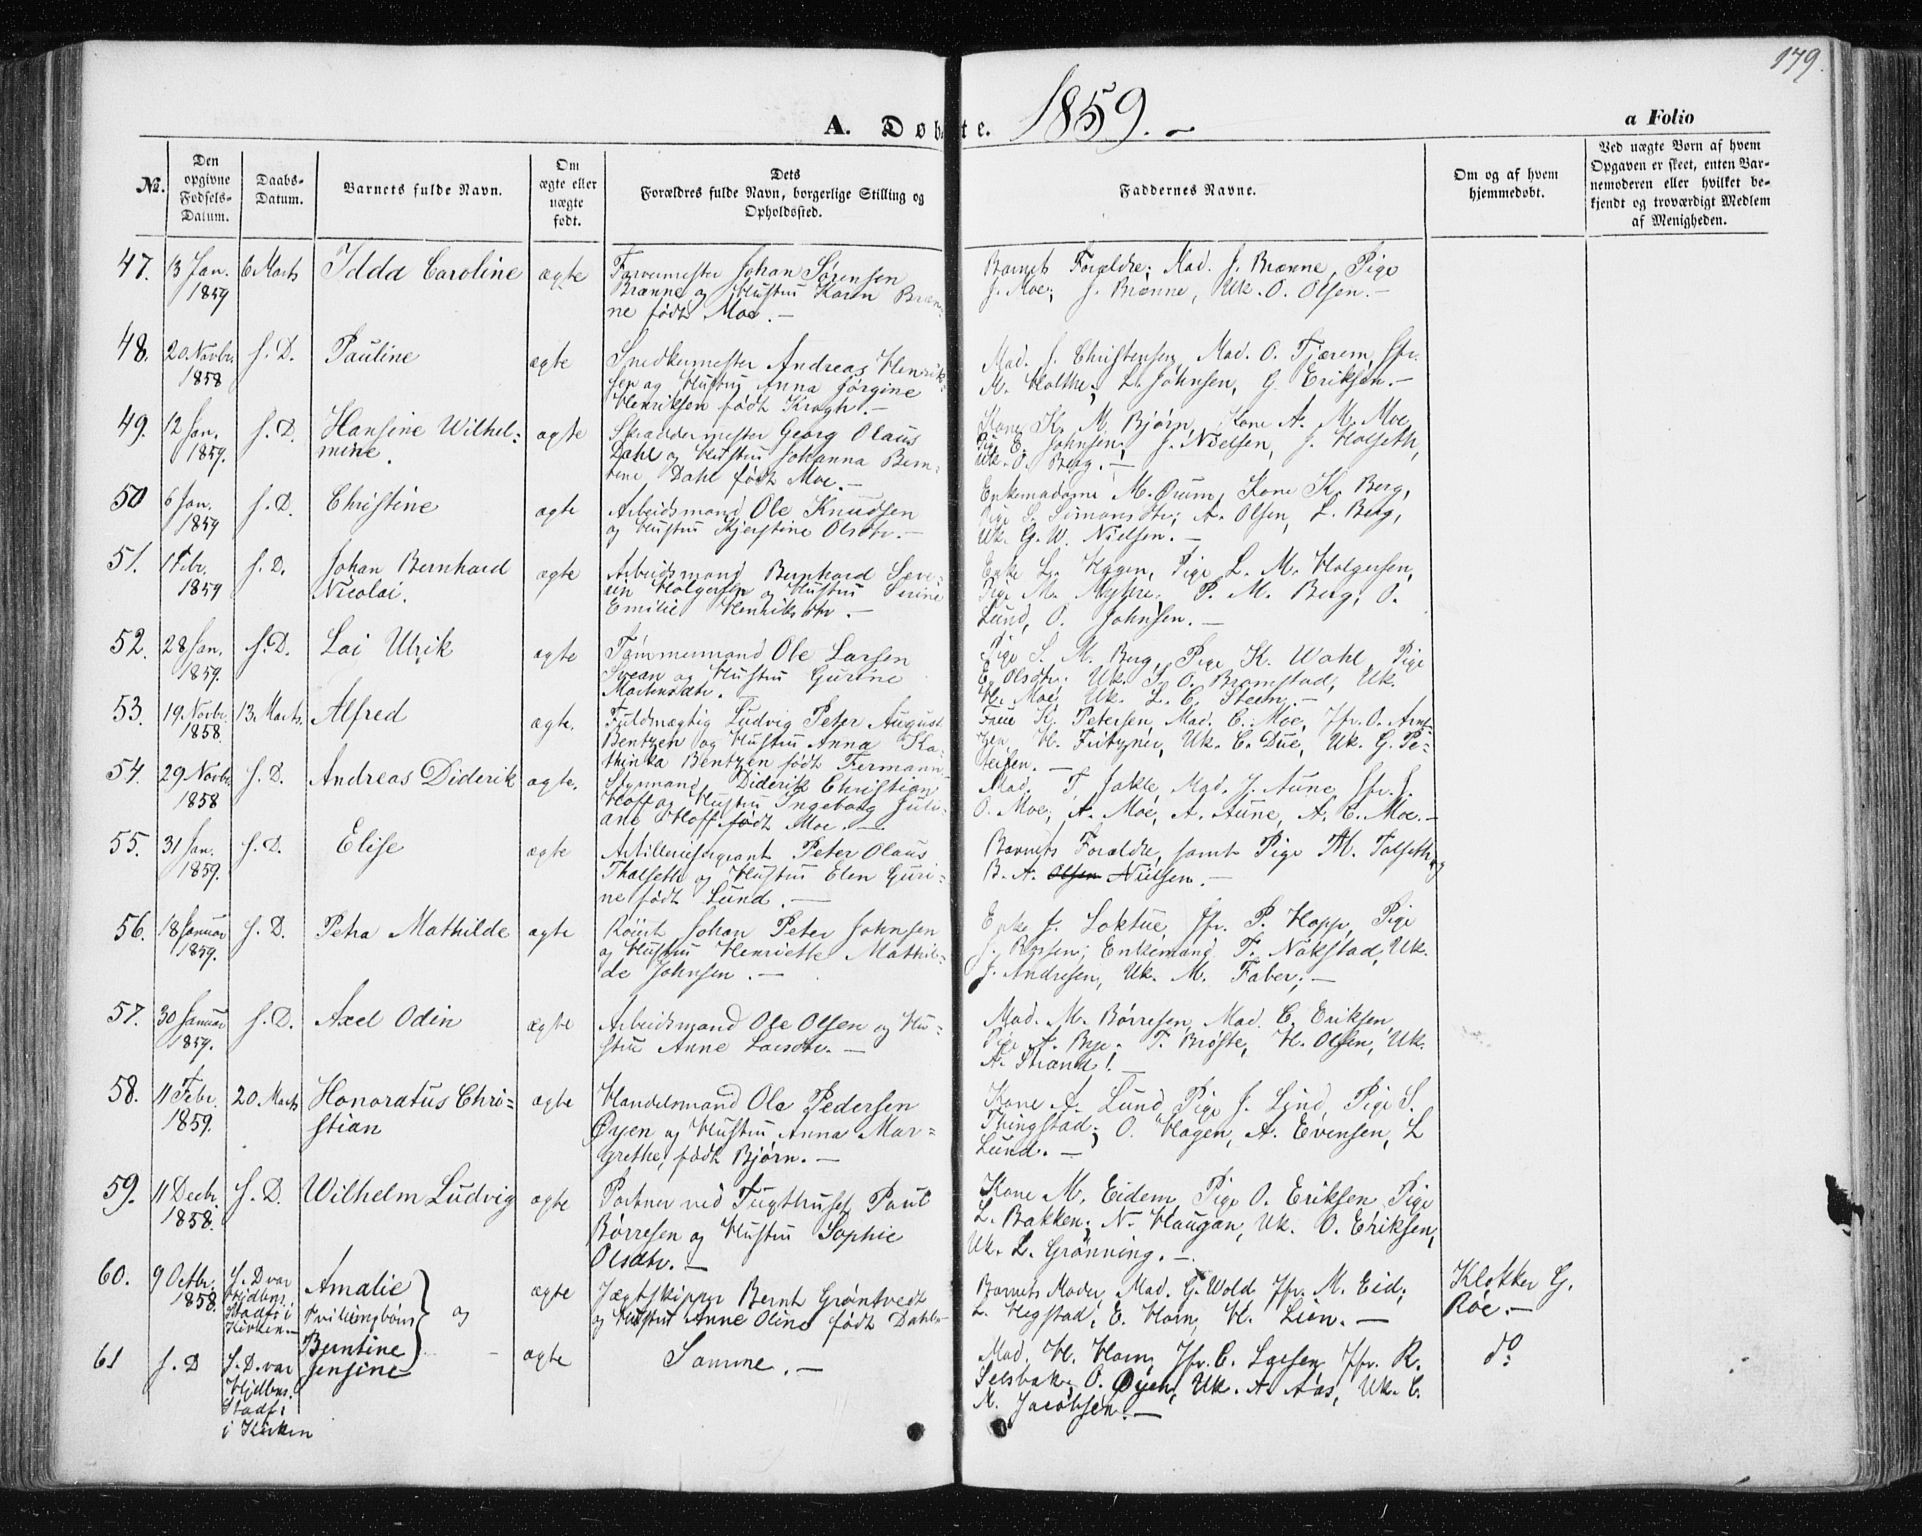 179.
A. Døbte. 1859.-
a Folio
No.
Den opgivne Fødsels-Datum.
Daabs-Datum.
Barnets fulde Navn.
Om ægte eller uægte født.
Dets Forældres fulde Navn, borgerlige Stilling og Opholdssted.
Faddernes Navne.
Om og af hvem hjemmedøbt.
Ved uægte Børn af hvem Opgaven er skeet, enten Barnemoderen eller hvilket bekjendt og troværdigt Medlem af Menigheden.
47. 13 Jan. 6 Marts Idda Caroline ægte Farvermester Johan Sørensen Barnets Forældre; Mad. J. Brænne, Pige
1859 Brænne og Hustru Karen Bræn- J. Moe; J. Brænne, Uk. O. Olsen.-
ne født Moe.-
48. 20 Novbr. s. D. Pauline ægte Snedkermester Andreas Henrik- Mad. J. Christensen, Mad. O. Fjærem, Jfr.
1858 sen og Hustru Anna Jørgine M. Holthe; L. Johnsen, G. Eriksen.-
Henriksen født Krogh.-
49. 12 Jan. s. D. Hansine Wilhel- ægte Skræddermester Georg Olaus Kone K. M. Bjørn, Kone A. M. Moe,
1859. mine. Dahl og Hustru Johanna Bern- Pige E. Johnsen; J. Nielsen, J. Holseth,
tine Dahl født Moe.- Uk. O. Berg.-
50 6 Jan. s. D. Christine ægte Arbeidsmand Ole Knudsen Enkemadame M. Ørum, Kone K. Berg,
1859 og Hustru Kjerstine Olsdtr.- Pige S. Simonsdtr; A. Olsen, L. Berg,
Uk. G. W. Nielsen.-
51. 1 Febr. s. D. Johan Bernhard ægte Arbeidsmand Bernhard Seve- Enke L. Hagen, Pige L. M. Holgersen,
1859 Nicolai. rin Holgersen og Hustru Serine Pige M. Myhre; P. M. Berg, O.
Emilie Henriksdtr.- Lund, O. Johnsen.-
52. 28 Jan. s. D. Lai Ulrik ægte Tømmermand Ole Larsen Pige S. M. Berg, Pige K. Wahl, Pige
1859. Svean og Hustru Gurine E. Olsdtr; Uk. J. O. Bromstad, Uk.
Martensdtr. H. Moe, Uk. L. C. Steen.-
53. 19 Novbr. 13 Marts. Alfred ægte. Fuldmægtig Ludvig Peter August Frue K. Petersen, Mad. C. Moe, Jfr. O. Arnt-
1858. Bentzen og Hustru Anna Ka- zen, H. Fritzner, Uk. C. Due, Uk. G. Pe-
thinka Bentzen født Fermann tersen.-
54. 29 Novbr. s. D. Andreas Diderik ægte. Styrmand Diderik Christian Mad. T. Jakle, Mad. J. Aune, Jfr. J.
1858 Hoff og Hustru Ingeborg Juli- O. Moe; A. Moe, A. Aune, A. C. Moe.-
ane Hoff født Moe.-
55. 31 Jan. s. D. Elise ægte Artilleriesergeant Peter Olaus Barnets Forældre, samt Pige M. Talseth og
1859. Thalseth og Hustru Elen Guri- B. A. Olsen Nielsen.-
ne født Lund.-
56. 18 Januar s. D. Petra Mathilde ægte Johan Peter Johnsen Enke J. Loktue, Jfr. P. Hopp, Pige
1859. og Hustru Henriette Mathil- J. Enkemand T. Nakstad, Uk.
de Johnsen.- J. Andresen, Uk. M. Faber;-
57. 30 Januar s. D. Axel Odin ægte Arbeidsmand Ole Olsen og Hu- Mad. M. Børresen, Mad. C. Eriksen,
1859. stru Anne Larsdtr.- Pige A. Bye. T. Brøste, H. Olsen, Uk.
A. Strand.-
58. 11 Febr. 20 Marts Honoratus Chri- ægte Handelsmand Ole Pedersen Kone A. Lund, Pige J. Lynd, Pige S.
1859. stian Øyen og Hustru Anna Mar- Thingstad; O. Hagen, A. Evensen, L
grethe, født Bjørn.- Lund.-
59. 11 Decbr. s. D. Wilhelm Ludvig ægte Portner ved Tugthuset Paul Kone M. Eidem, Pige O. Eriksen, Pige
1858. Børresen og Hustru Sophie L. Bakken; N. Haugan, Uk. O. Eriksen,
Olsdtr.- Uk. L. Grønning.-
60. 9 Octbr. s. D var Amalie ægte Jægtskipper Bernt Grøntvedt Barnets Moder, Mad. G. Wold, Jfr. M. Eid; Klokker G.
1858. Hjdbns. Stadf. i Kirken Tvillingbørn og og Hustru Anne Oline født Dahl L. Hegstad, E. Horn, H. Lien.- Røe.-
61 s. D s. D. var Bentine Jensine ægte Samme.- Mad. H. Horn, Jfr. C. Larsen, Jfr. R. do
Hjdbns. Selsbak; O. Øyen, Uk. A. Aas, Uk. C.
Stadf. M. Jacobsen.-
i Kirken